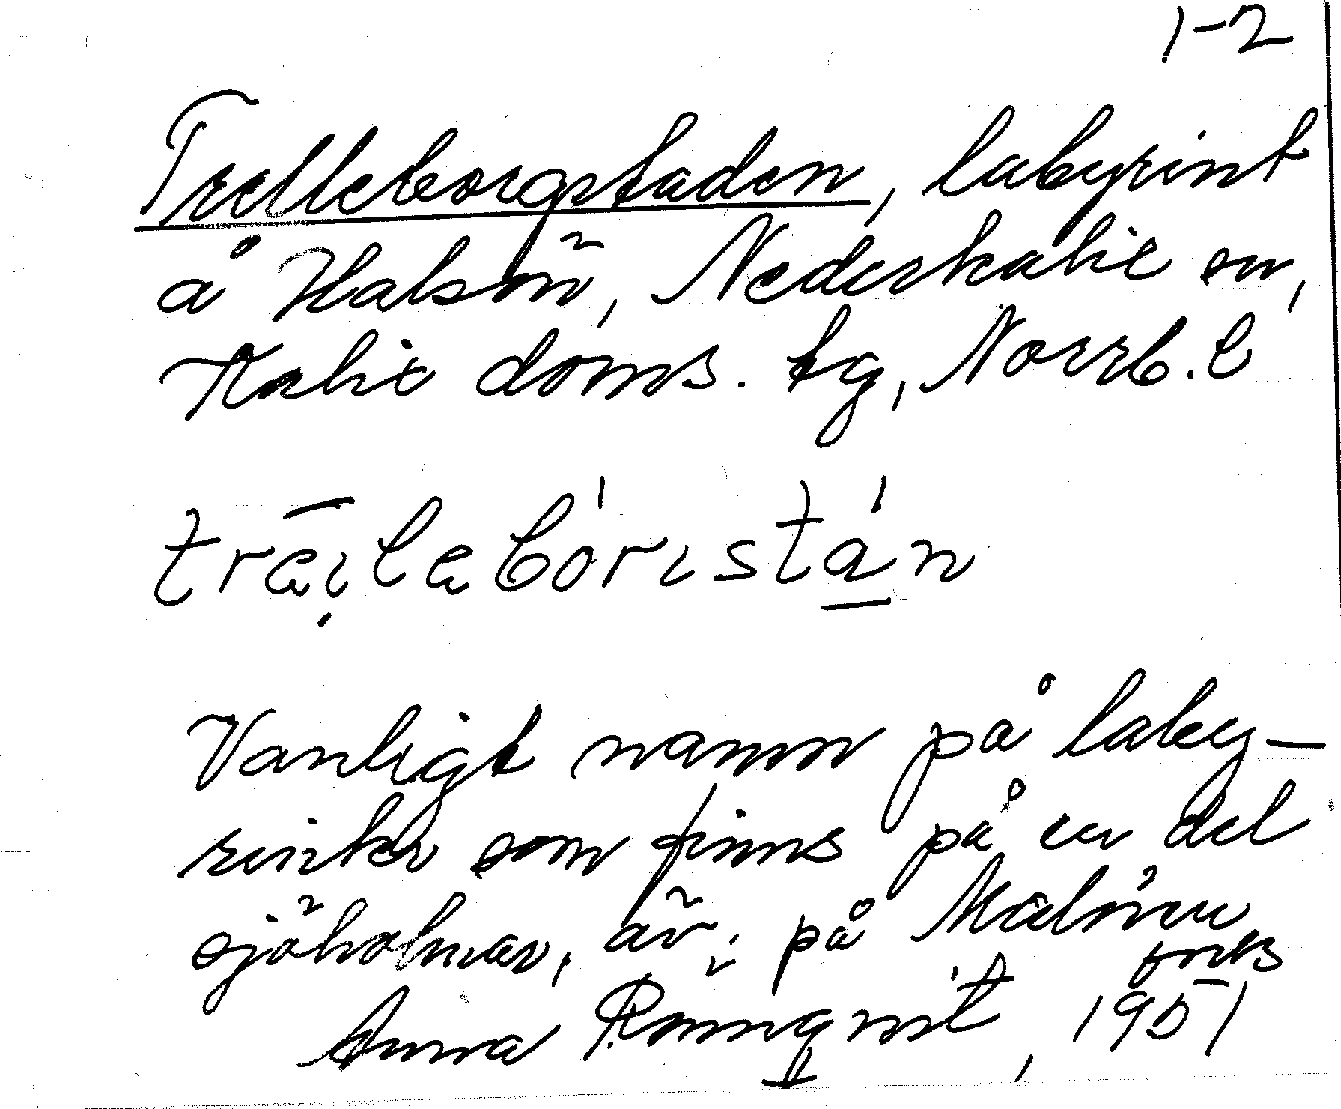 1-2
Trelleborgstaden, labyrint
å Halsön, Nederkalix sn,
Kalix doms. tg, Norrb. l
Vanligt namn på laby-
rinter som finns på en del
sjöholmar, äv. på Malören
finns
Anna Rönnqvist, 1951